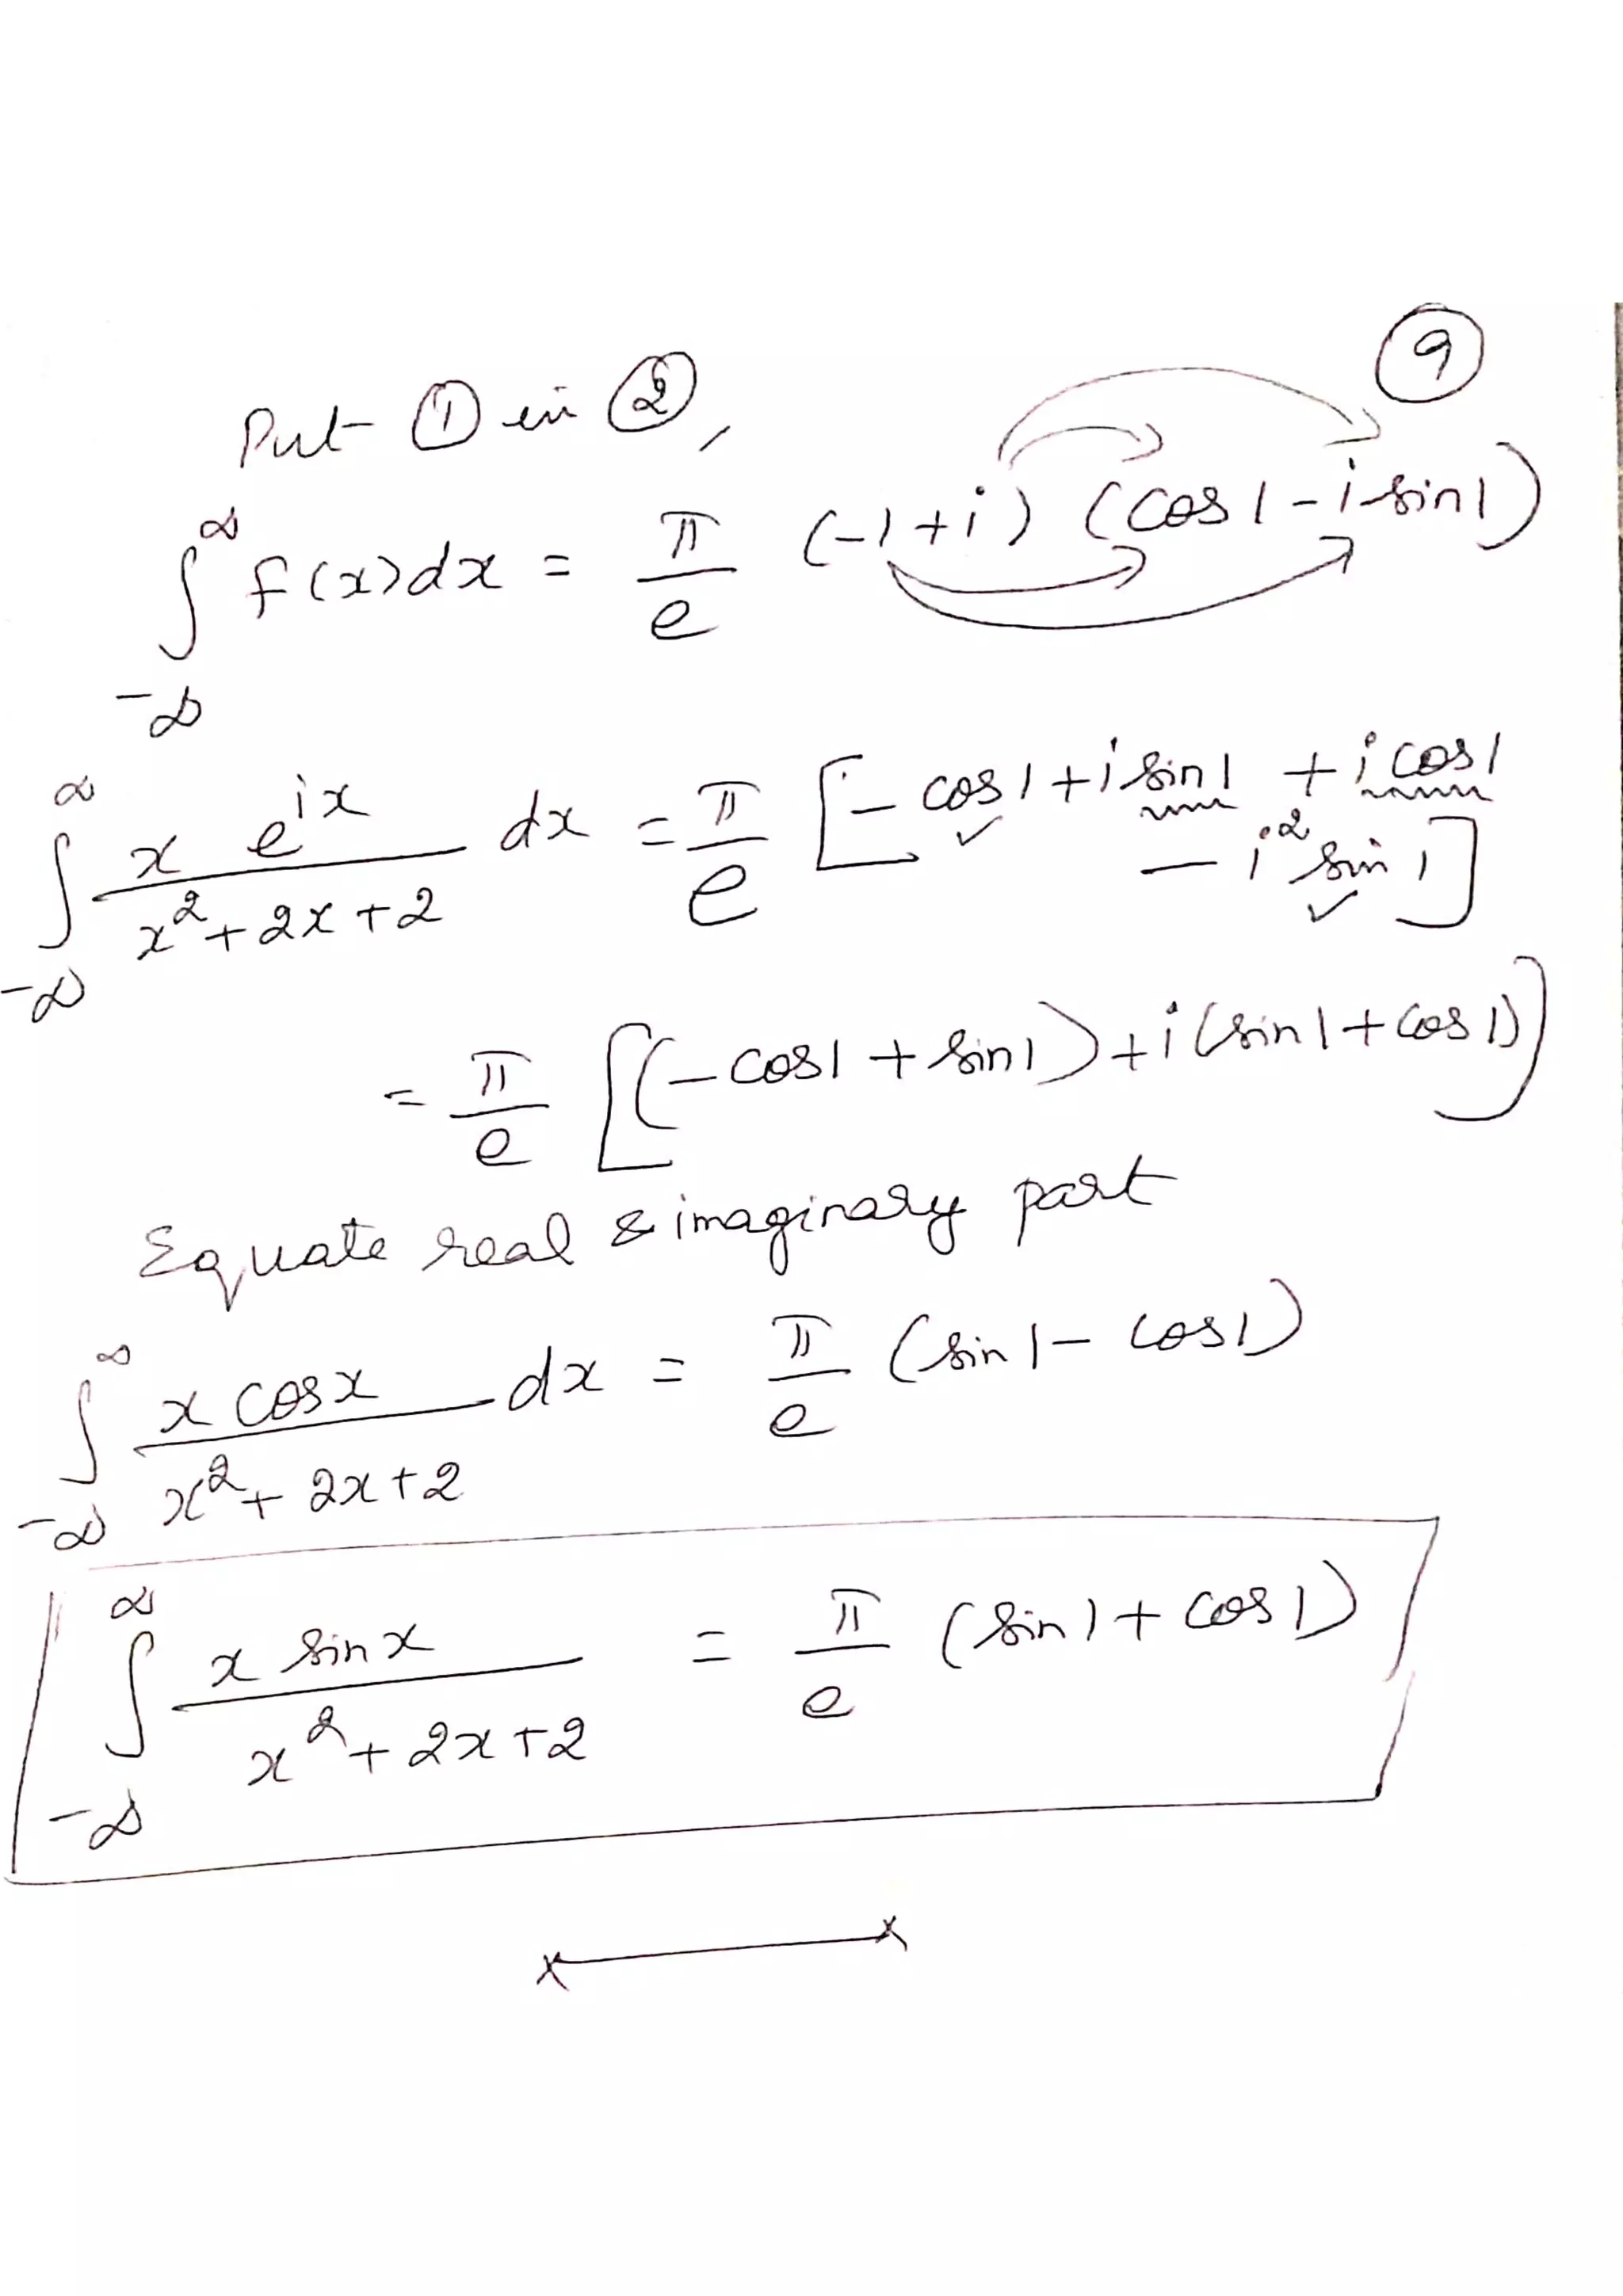 9
Put ① in ②,
∫_{-∞}^{∞} f(x)dx = π/e (-1+i) (cos1 - i sin1)
∫_{-∞}^{∞} x e^{ix} / (x²+2x+2) dx = π/e [-cos1 + i sin1 + i cos1
- i² sin1]
= π/e [(-cos1 + sin1) + i(sin1 + cos1)]
Equate real & imaginary part
∫_{-∞}^{∞} x cosx / (x²+2x+2) dx = π/e (sin1 - cos1)
∫_{-∞}^{∞} x sinx / (x²+2x+2) = π/e (sin1 + cos1)